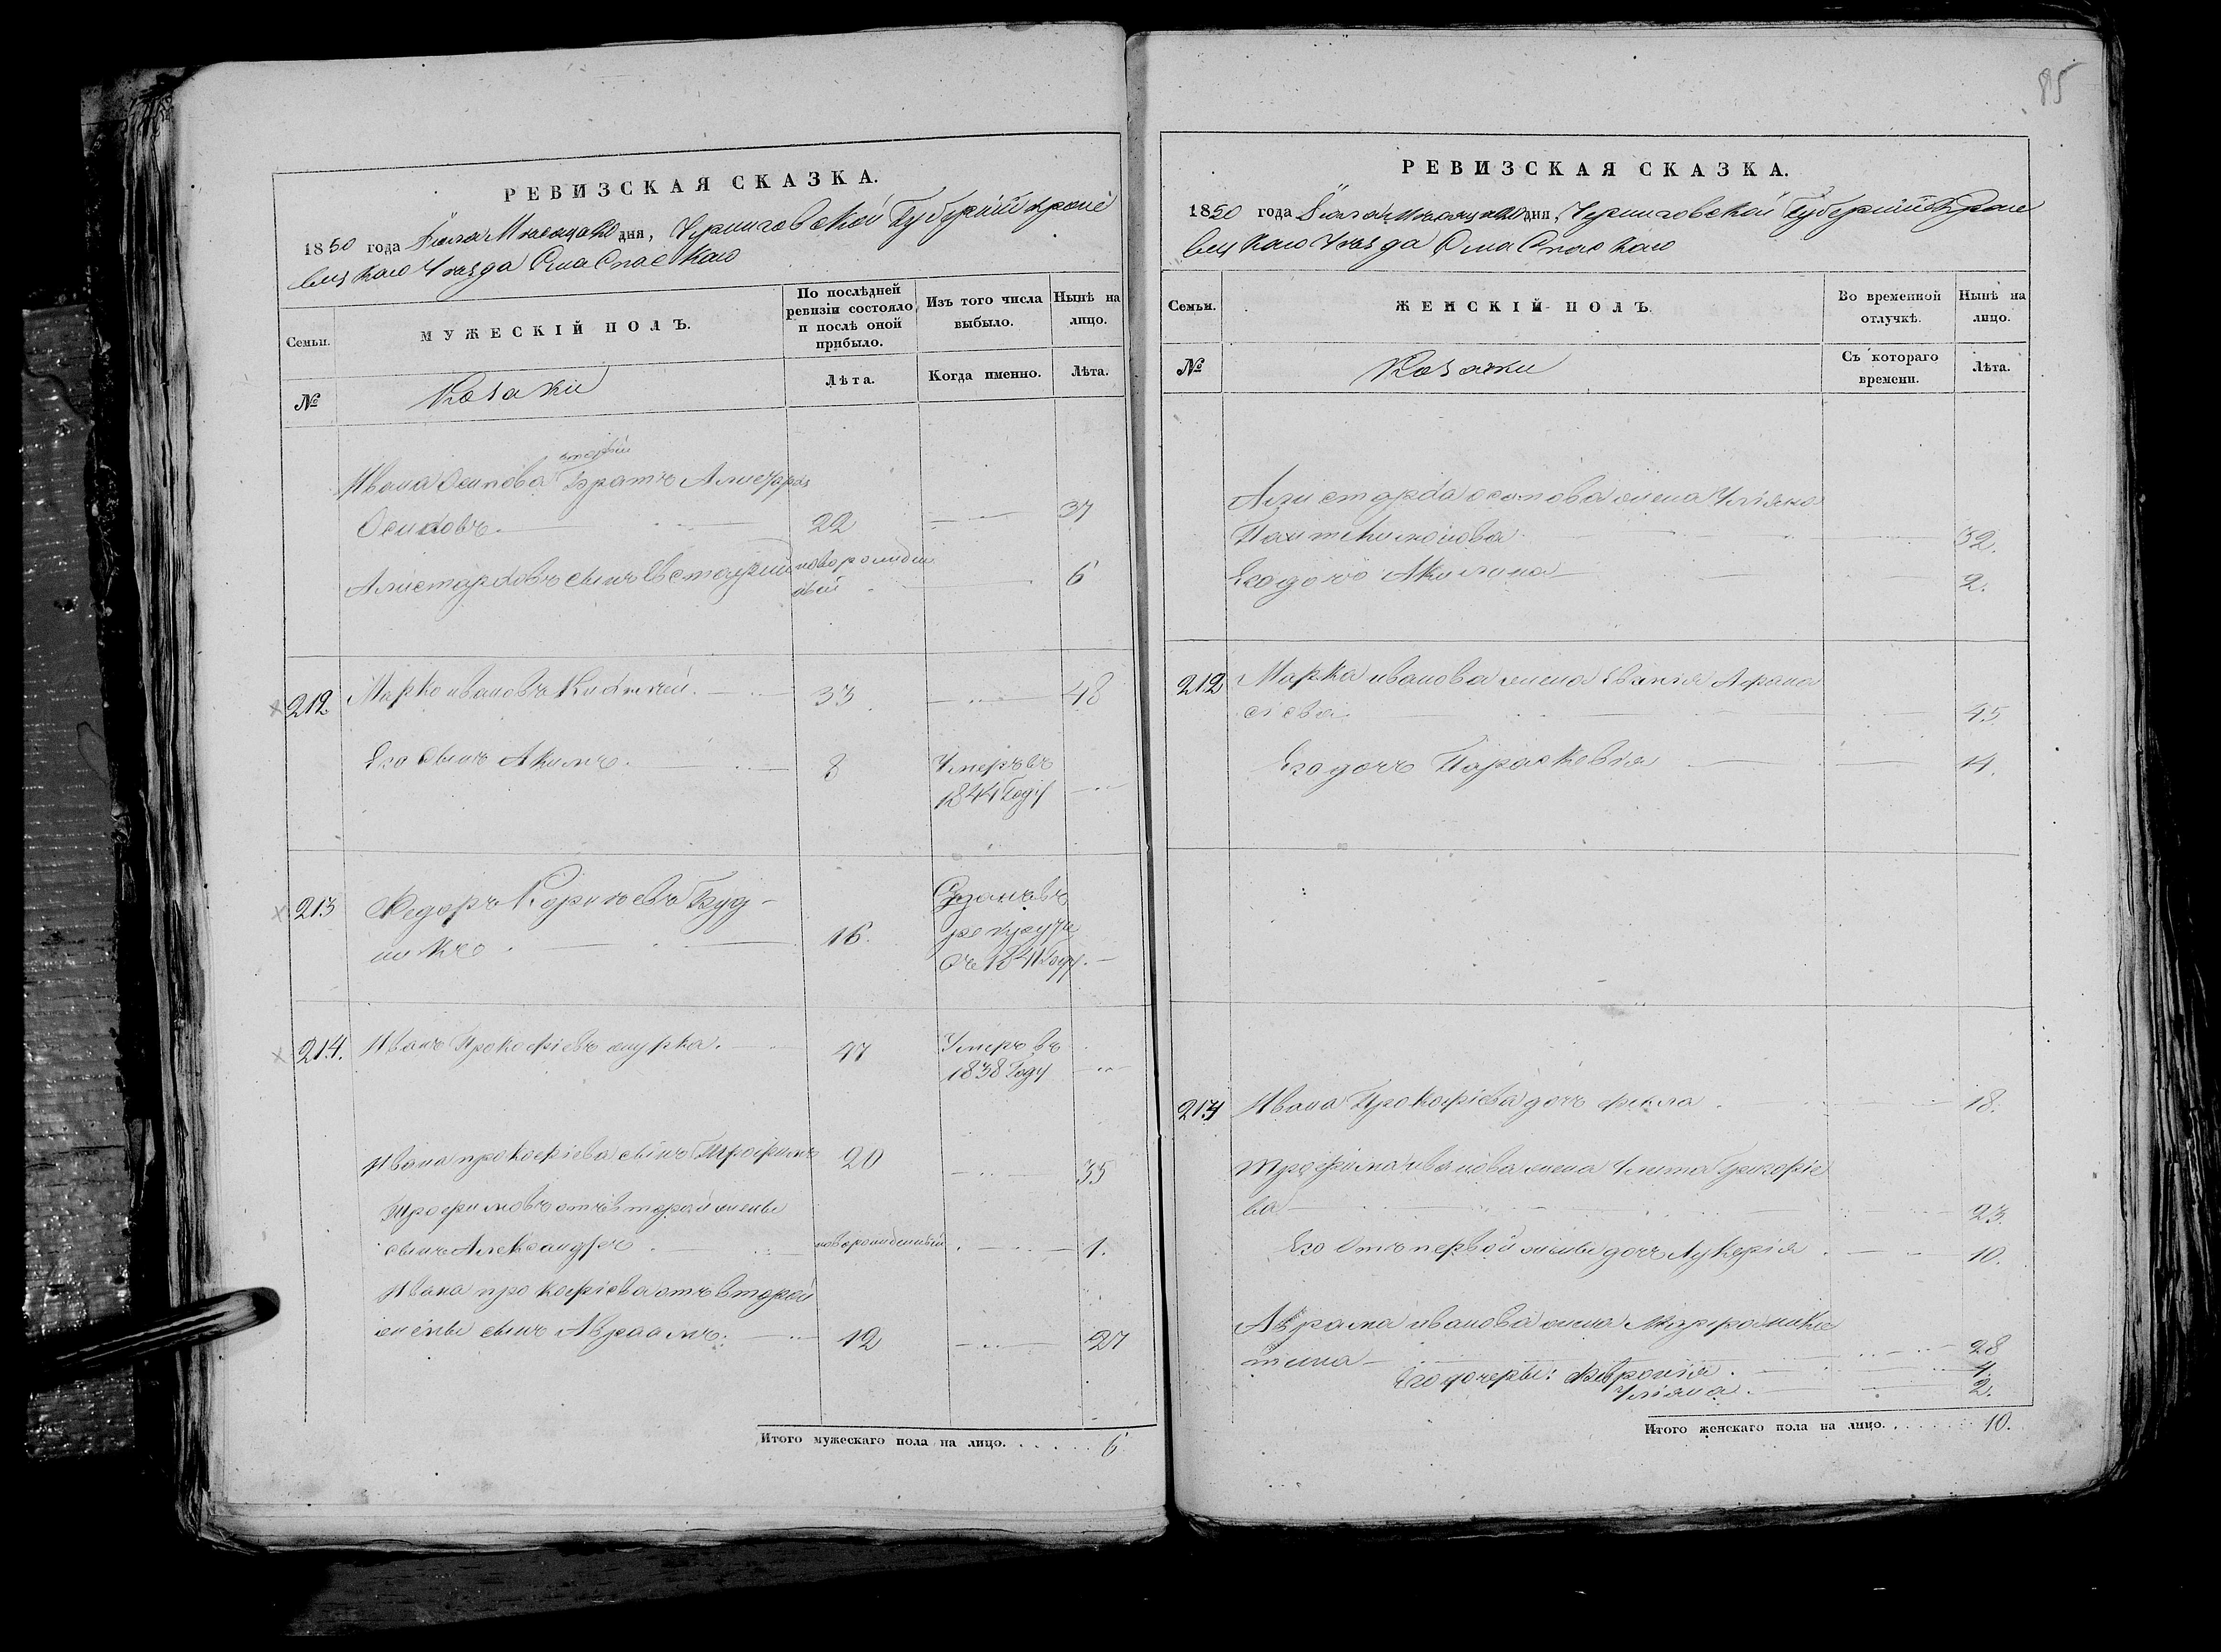 85
РЕВИЗСКАЯ СКАЗКА.
1850 года Іюля Месяца 20 дня, Черниговской Губерніи Кроле
вецкаго Уезда Села Спаскаго
Семьи.
МУЖЕСКІЙ ПОЛЪ.
По послѣдней
ревизіи состояло
и послѣ оной
прибыло.
Изъ того числа
выбыло.
Нынѣ на
лицо.
№
Козаки
Лѣта.
Когда именно.
Лѣта.
вторый
Ивана Осипова Братъ
Осиповъ 22 37
сынъ новорожден
ный 6
212 Марко Ивановъ 33 48
Его Сынъ Акимъ 8 Умеръ въ
1844 Году
213 Федоръ Буд-
16. Сданъ въ
рекруты
въ 1841 Году.
214. Иванъ Прокофіевъ 47 Умеръ въ
1838 Году
Ивана прокофіева сынъ Трофимъ 20 35
Трофимовъ отъ второй жены
сынъ Александръ новорожденный 1.
Ивана прокофіева отъ второй
жены сынъ Авраамъ 12 27
Итого мужескаго пола на лицо. 6
РЕВИЗСКАЯ СКАЗКА.
1850 года Іюля Месяца 20 дня, Черниговской Губерніи Кроле
вецкаго Уезда Села Спаскаго
Семьи.
ЖЕНСКІЙ ПОЛЪ.
Во временной
отлучкѣ.
Нынѣ на
лицо.
№
Козачки
Съ котораго
времени.
Лѣта.
осипова жена Уліяна
Пантелимонова 32.
Его дочь Акилина 2.
212 Марка иванова жена Евгенія Афана
сіева 45
Его дочь Параскевія 14.
214 Ивана Прокофіева дочь Фекла 18.
Трофима иванова жена Улита Григоріе
ва 23.
Его Отъ первой жены дочь Лукерія 10.
Аврама иванова жена Марфа Ники
тина 28
Его дочери: Февронія 4.
Уліяна. 2.
Итого женскаго пола на лицо. 10.